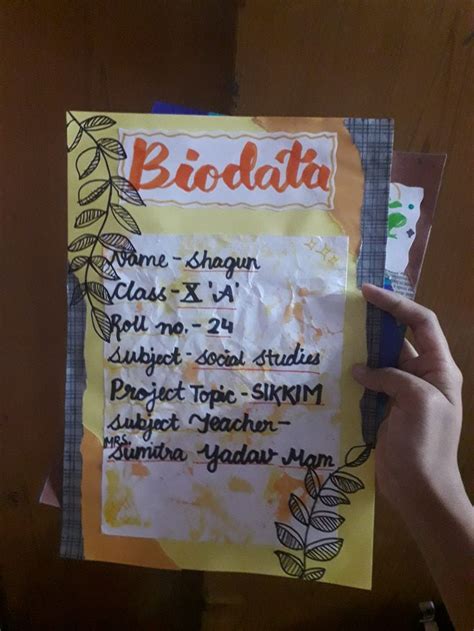 Biodata
Name - Shagun
Class - X 'A'
Roll no. - 24
Subject - Social Studies
Project Topic - SIKKIM
Subject Teacher -
MRS. Sumitra Yadav Mam